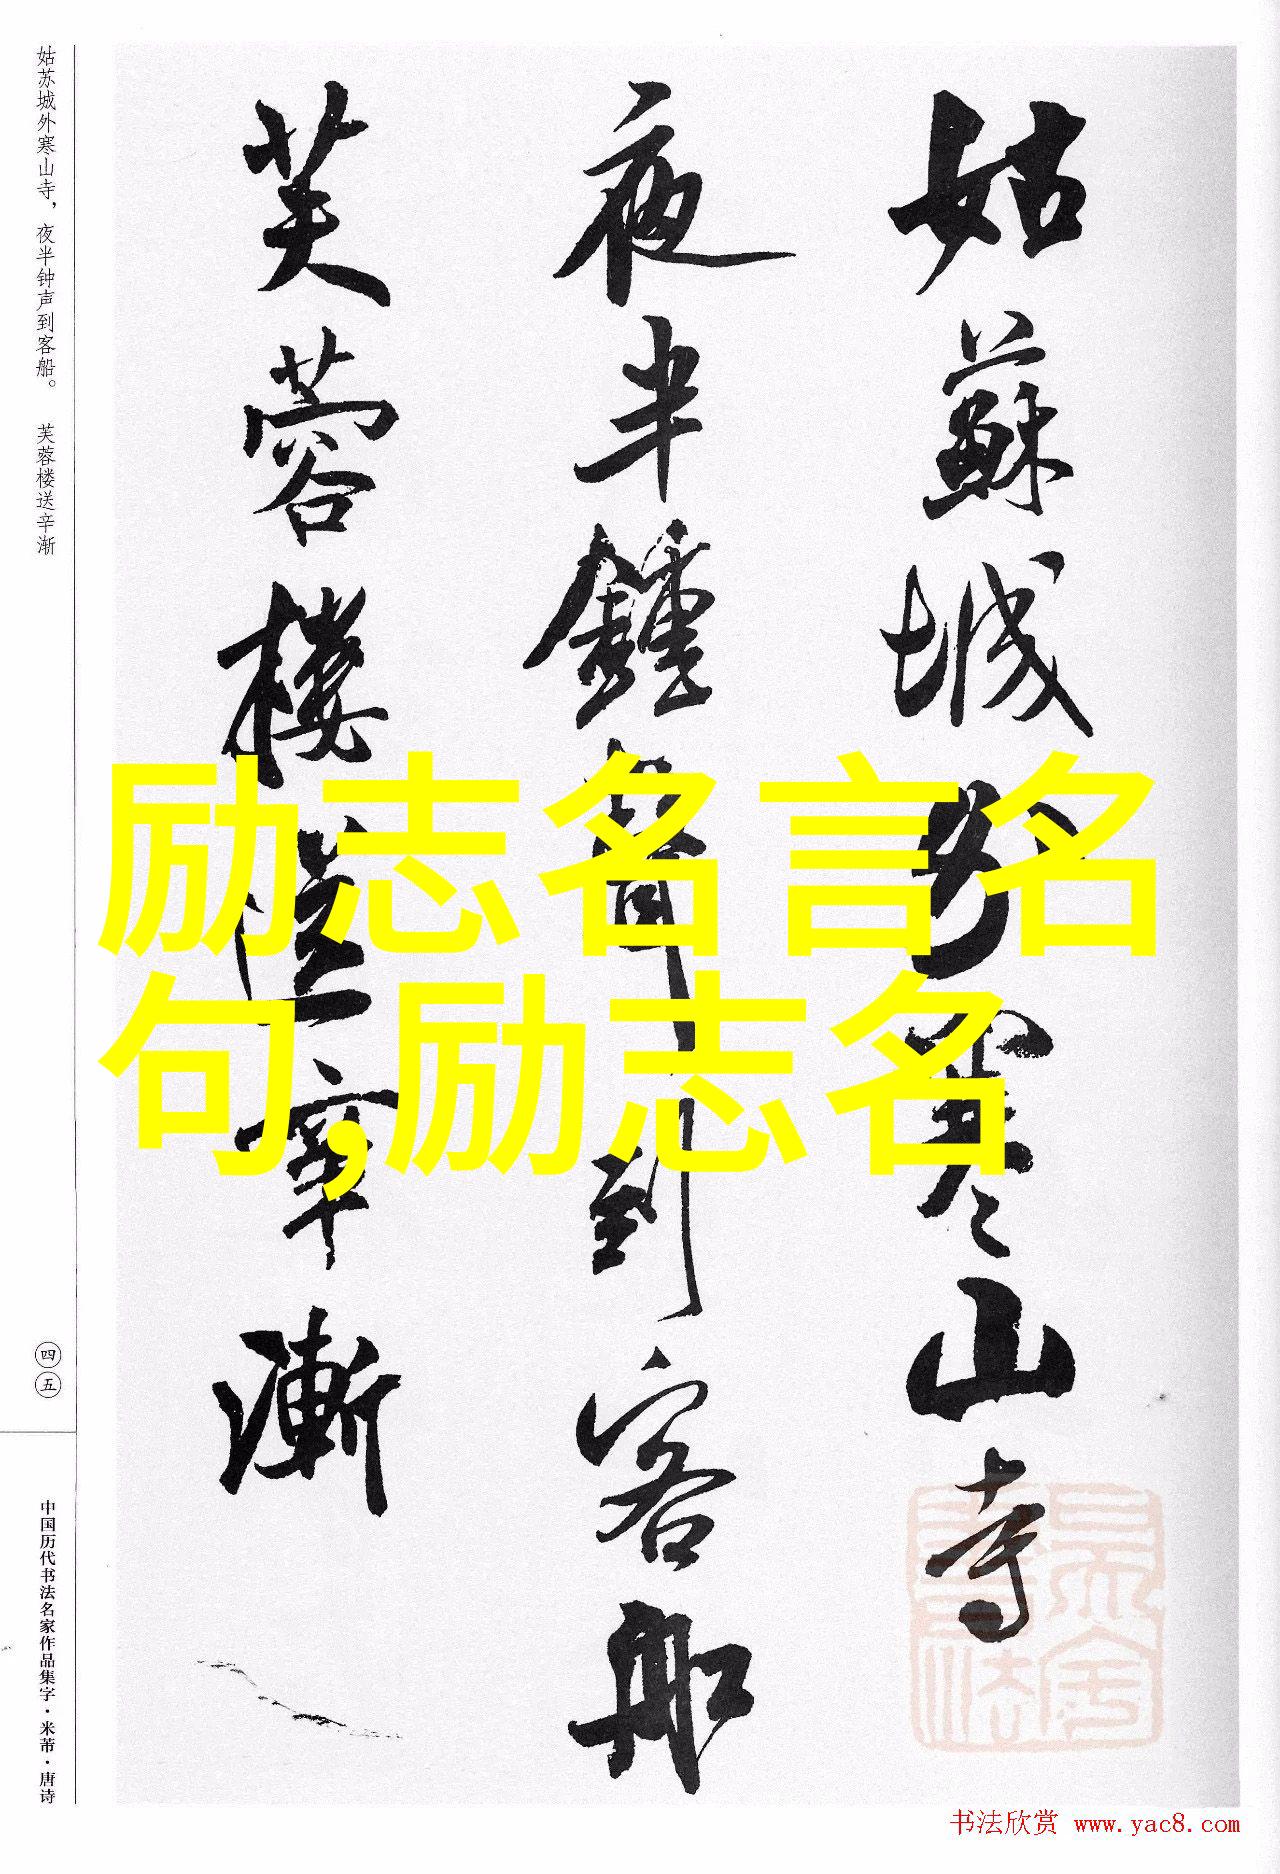 姑蘇城外寒山寺
夜半鍾聲到客船
芙蓉樓送辛漸
姑苏城外寒山寺，夜半钟声到客船。 芙蓉楼送辛渐
四五
中国历代书法名家作品集字·米芾·唐诗
励志名言名
句,励志名
书法欣赏 www.yac8.com